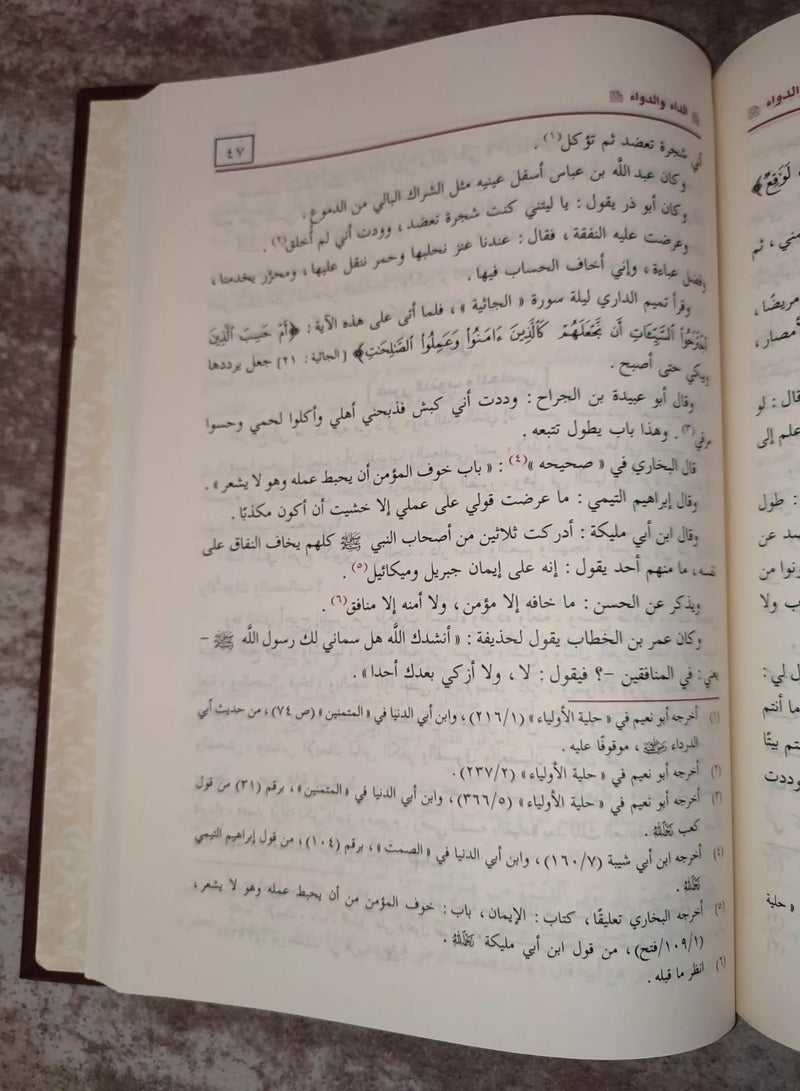 الداء والدواء
٤٧
أني شجرة تعضد ثم تؤكل(١) .
وكان عبد اللَّه بن عباس أسفل عينيه مثل الشراك البالي من الدموع .
وكان أبو ذر يقول : يا ليتني كنت شجرة تعضد ، وودت أني لم أُخلق(٢) .
وعرضت عليه النفقة ، فقال : عندنا عنز نحلبها وحمر ننقل عليها ، ومحرَّر يخدمنا ،
وفضل عباءة ، وإني أخاف الحساب فيها .
وقرأ تميم الداري ليلة سورة « الجاثية » ، فلما أتى على هذه الآية : ﴿أَمْ حَسِبَ ٱلَّذِينَ
ٱجْتَرَحُوا۟ ٱلسَّيِّـَٔاتِ أَن نَّجْعَلَهُمْ كَٱلَّذِينَ ءَامَنُوا۟ وَعَمِلُوا۟ ٱلصَّـٰلِحَـٰتِ﴾ [الجاثية : ٢١] جعل يرددها
ويبكي حتى أصبح .
وقال أبو عبيدة بن الجراح : وددت أني كبش فذبحني أهلي وأكلوا لحمي وحسوا
مرقي(٣) . وهذا باب يطول تتبعه .
قال البخاري في « صحيحه »(٤) : « باب خوف المؤمن أن يحبط عمله وهو لا يشعر » .
وقال إبراهيم التيمي : ما عرضت قولي على عملي إلا خشيت أن أكون مكذبًا .
وقال ابن أبي مليكة : أدركت ثلاثين من أصحاب النبي ﷺ كلهم يخاف النفاق على
نفسه ، ما منهم أحد يقول : إنه على إيمان جبريل وميكائيل(٥) .
ويذكر عن الحسن : ما خافه إلا مؤمن ، ولا أمنه إلا منافق(٦) .
وكان عمر بن الخطاب يقول لحذيفة : « أنشدك اللَّه هل سماني لك رسول اللَّه ﷺ -
يعني : في المنافقين -؟ فيقول : لا ، ولا أزكي بعدك أحدا » .
(١) أخرجه أبو نعيم في « حلية الأولياء » (٢١٦/١) ، وابن أبي الدنيا في « المتمنين » (ص ٧٤) ، من حديث أبي
الدرداء ، موقوفًا عليه .
(٢) أخرجه أبو نعيم في « حلية الأولياء » (٢٣٧/٢) .
(٣) أخرجه أبو نعيم في « حلية الأولياء » (٣٦٦/٥) ، وابن أبي الدنيا في « المتمنين » ، برقم (٣١) من قول
كعب .
(٤) أخرجه ابن أبي شيبة (١٦٠/٧) ، وابن أبي الدنيا في « الصمت » ، برقم (١٠٤) ، من قول إبراهيم التيمي
(٥) أخرجه البخاري تعليقًا ، كتاب : الإيمان ، باب : خوف المؤمن من أن يحبط عمله وهو لا يشعر ،
(١٠٩/١/فتح) ، من قول ابن أبي مليكة .
(٦) انظر ما قبله .
والدواء
لَوَٰقِعٌ﴾
مني ، ثم
مريضًا ،
أمصار ،
قال : لو
علم إلى
: طول
صد عن
ب ولا
ل لي :
ما أنتم
تم بيتًا
وددت
« حلية